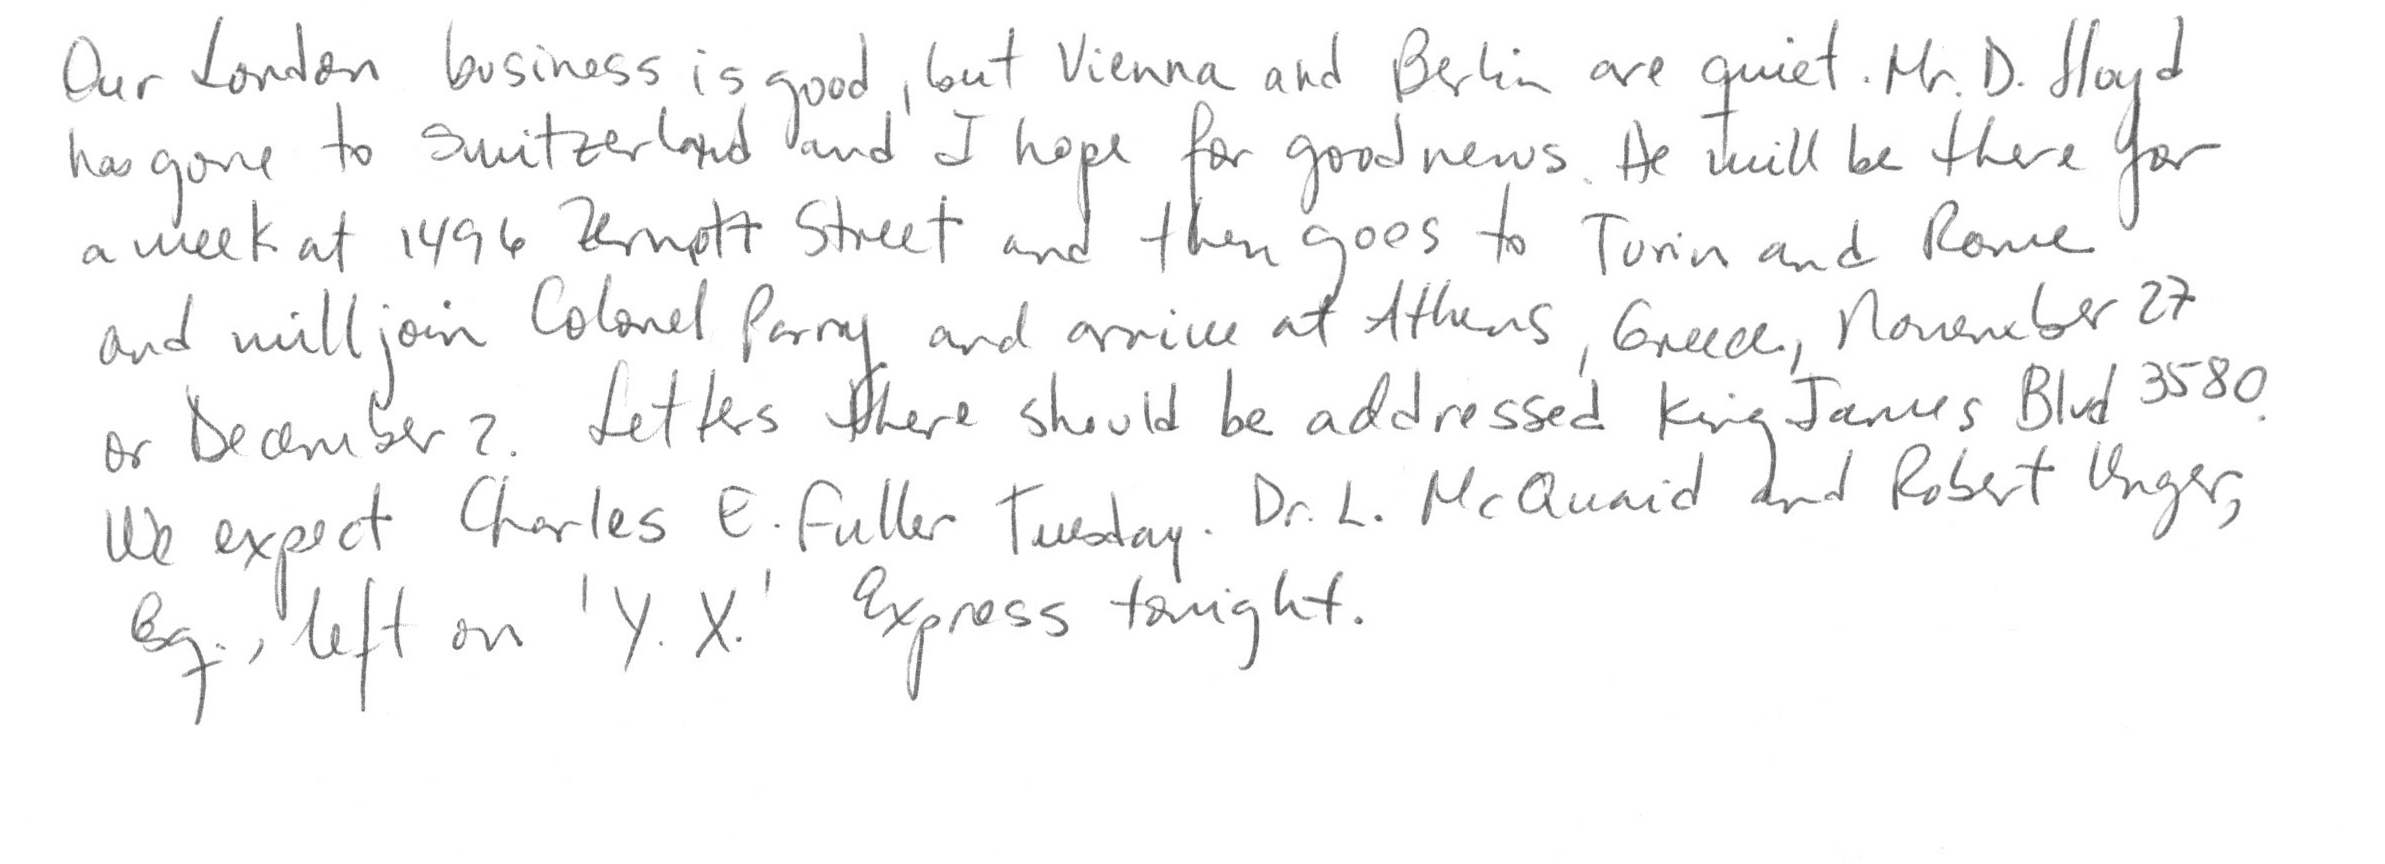 Our London business is good, but Vienna and Berlin are quiet. Mr. D. Lloyd
has gone to Switzerland and I hope for good news. He will be there for
a week at 1496 Zermott Street and then goes to Turin and Rome
and will join Colonel Parry and arrive at Athens, Greece, November 27
or December 2. Letters there should be addressed King James Blvd 3580.
We expect Charles E. Fuller Tuesday. Dr. L. McQuaid and Robert Unger,
Esq., left on 'Y. X.' Express tonight.